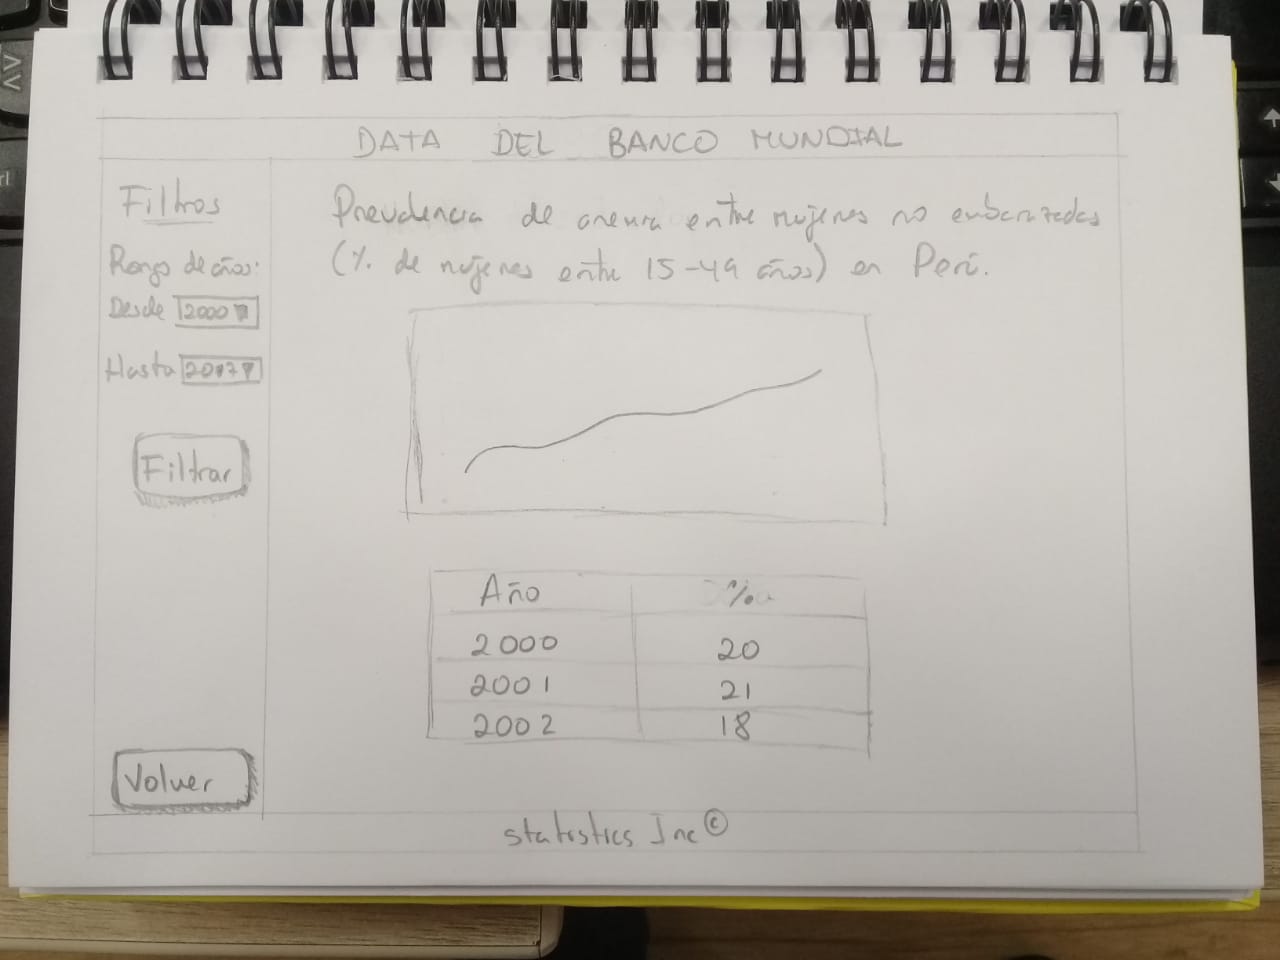 DATA DEL BANCO MUNDIAL
Filtros
Rango de años:
Desde 2000
Hasta 2017
Filtrar
Volver
Prevalencia de anemia entre mujeres no embarazadas
(% de mujeres entre 15-49 años) en Perú.
Año %
2000 20
2001 21
2002 18
statistics Inc ©